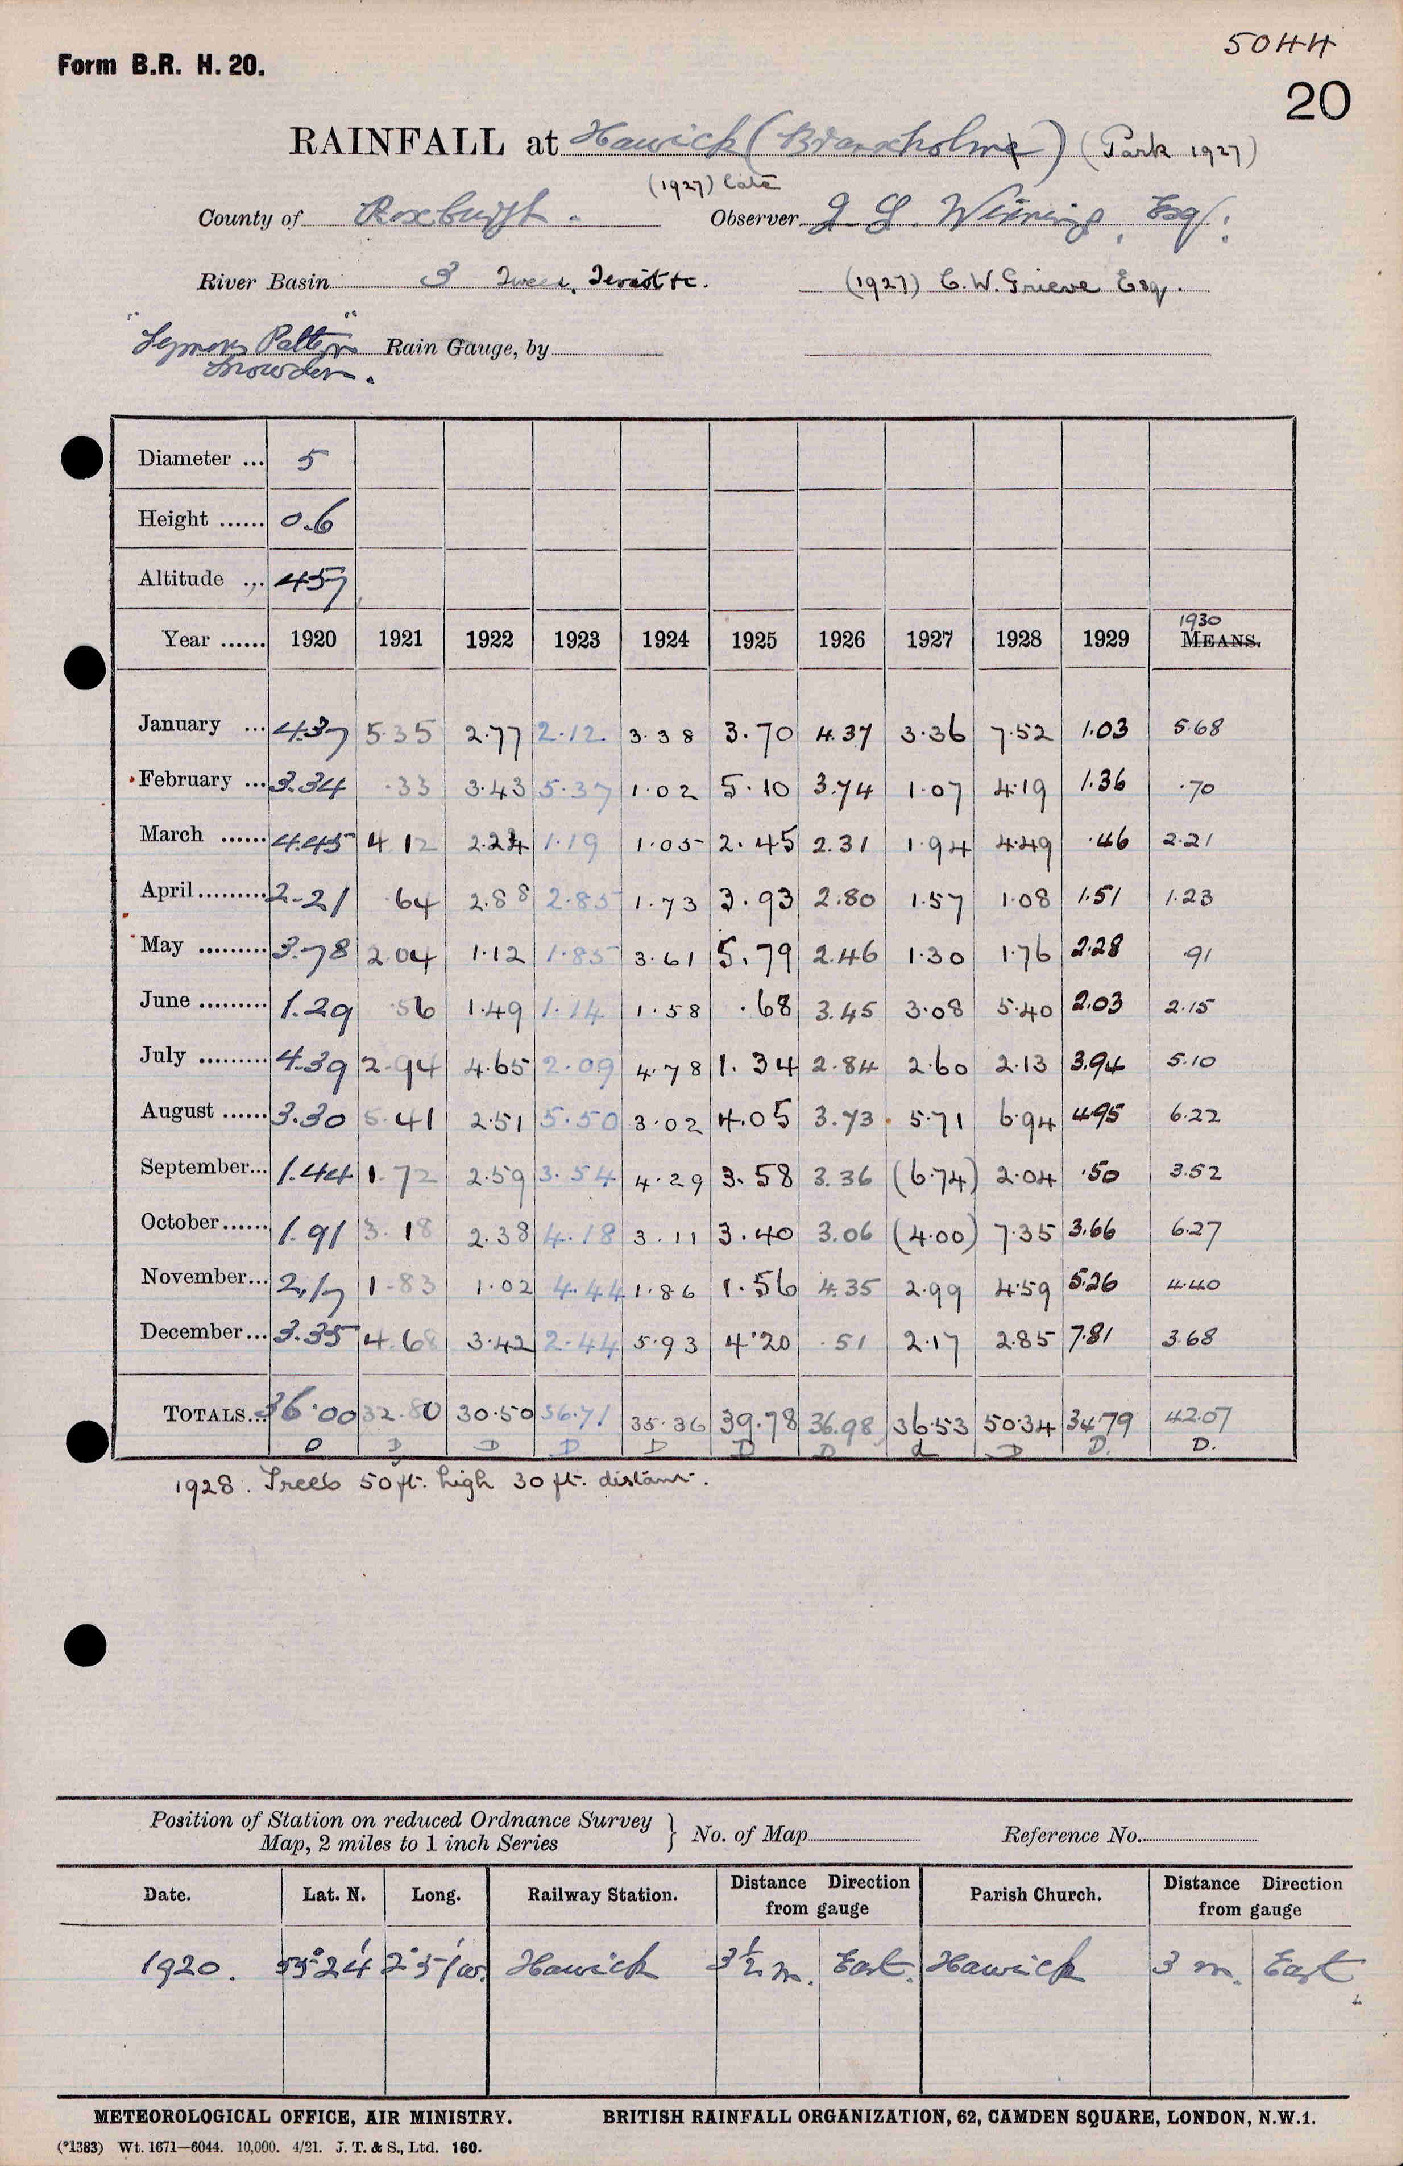 5044
Form B.R. H. 20.
20
RAINFALL at Hawick (Branxholme) (Park 1927)
(1927) late
County of Roxburgh. Observer J G Winning, Esq.
River Basin 3 Tweed, Teviot &c. (1927) C. W. Grieve Esq.
"Symons Pattern"
Snowdon. Rain Gauge, by
Diameter ... 5
Height ...... 0.6
Altitude ... 457
Year ...... 1920 1921 1922 1923 1924 1925 1926 1927 1928 1929 1930 MEANS.
January ... 4.37 5.35 2.77 2.12 3.38 3.70 4.37 3.36 7.52 1.03 5.68
February ... 3.34 .33 3.43 5.37 1.02 5.10 3.74 1.07 4.19 1.36 .70
March ...... 4.45 4.12 2.24 1.19 1.05 2.45 2.31 1.94 4.49 .46 2.21
April ......... 2.21 .64 2.88 2.85 1.73 3.93 2.80 1.57 1.08 1.51 1.23
May ......... 3.78 2.04 1.12 1.85 3.61 5.79 2.46 1.30 1.76 2.28 .91
June ......... 1.29 .56 1.49 1.14 1.58 .68 3.45 3.08 5.40 2.03 2.15
July ......... 4.39 2.94 4.65 2.09 4.78 1.34 2.84 2.60 2.13 3.94 5.10
August ...... 3.30 5.41 2.51 5.50 3.02 4.05 3.73 5.71 6.94 4.95 6.22
September... 1.44 1.72 2.59 3.54 4.29 3.58 3.36 (6.74) 2.04 .50 3.52
October...... 1.91 3.18 2.38 4.18 3.11 3.40 3.06 (4.00) 7.35 3.66 6.27
November... 2.17 1.83 1.02 4.44 1.86 1.56 4.35 2.99 4.59 5.26 4.40
December... 3.35 4.68 3.42 2.44 5.93 4.20 .51 2.17 2.85 7.81 3.68
TOTALS... 36.00 32.80 30.50 36.71 35.36 39.78 36.98 36.53 50.34 34.79 42.07
D D D D D D D d D D. D.
1928. Trees 50 ft. high 30 ft. distant.
Position of Station on reduced Ordnance Survey
Map, 2 miles to 1 inch Series } No. of Map Reference No.
Date. Lat. N. Long. Railway Station. Distance Direction from gauge Parish Church. Distance Direction from gauge
1920. 55°24' 2°51'W. Hawick 3½ m. East. Hawick 3 m. East
METEOROLOGICAL OFFICE, AIR MINISTRY. BRITISH RAINFALL ORGANIZATION, 62, CAMDEN SQUARE, LONDON, N.W.1.
(*1383) Wt. 1671—6044. 10,000. 4/21. J. T. & S., Ltd. 160.